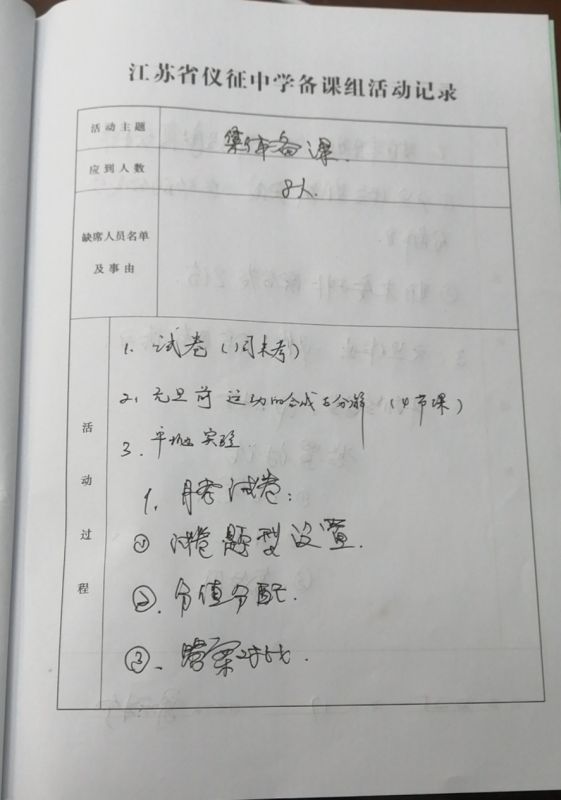 江苏省仪征中学备课组活动记录
活动主题
集体备课.
应到人数
8人.
缺席人员名单
及事由
活动过程
1. 试卷(周末考)
2. 元旦前 运动的合成与分解 (4节课)
3. 平抛 实验.
1. 月考试卷:
① 试卷题型设置.
②. 分值分配.
③、答案